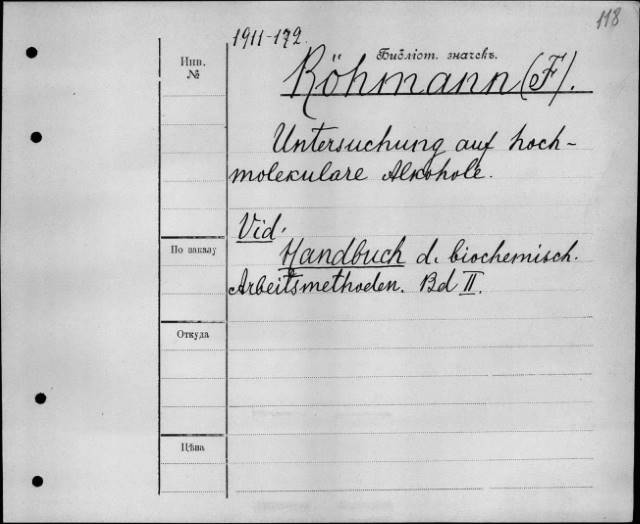 118
1911-172.
Инв.
№
Библіот. значекъ.
Röhmann (F).
Untersuchung auf hoch-
molekulare Alkohole.
Vid.
По заказу
Handbuch d. biochemisch.
Arbeitsmethoden. Bd II.
Откуда
Цѣна